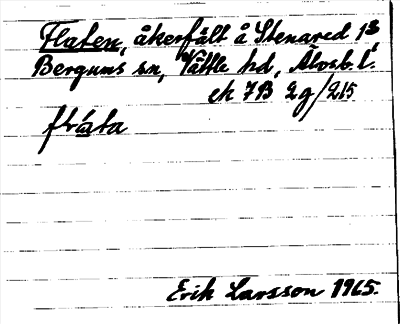 Flaten, åkerfält å Stenared 1³
Bergums sn, Vättle hd, Älvsb. l.
ek 7B 2g/215
flàta
Erik Larsson 1965.